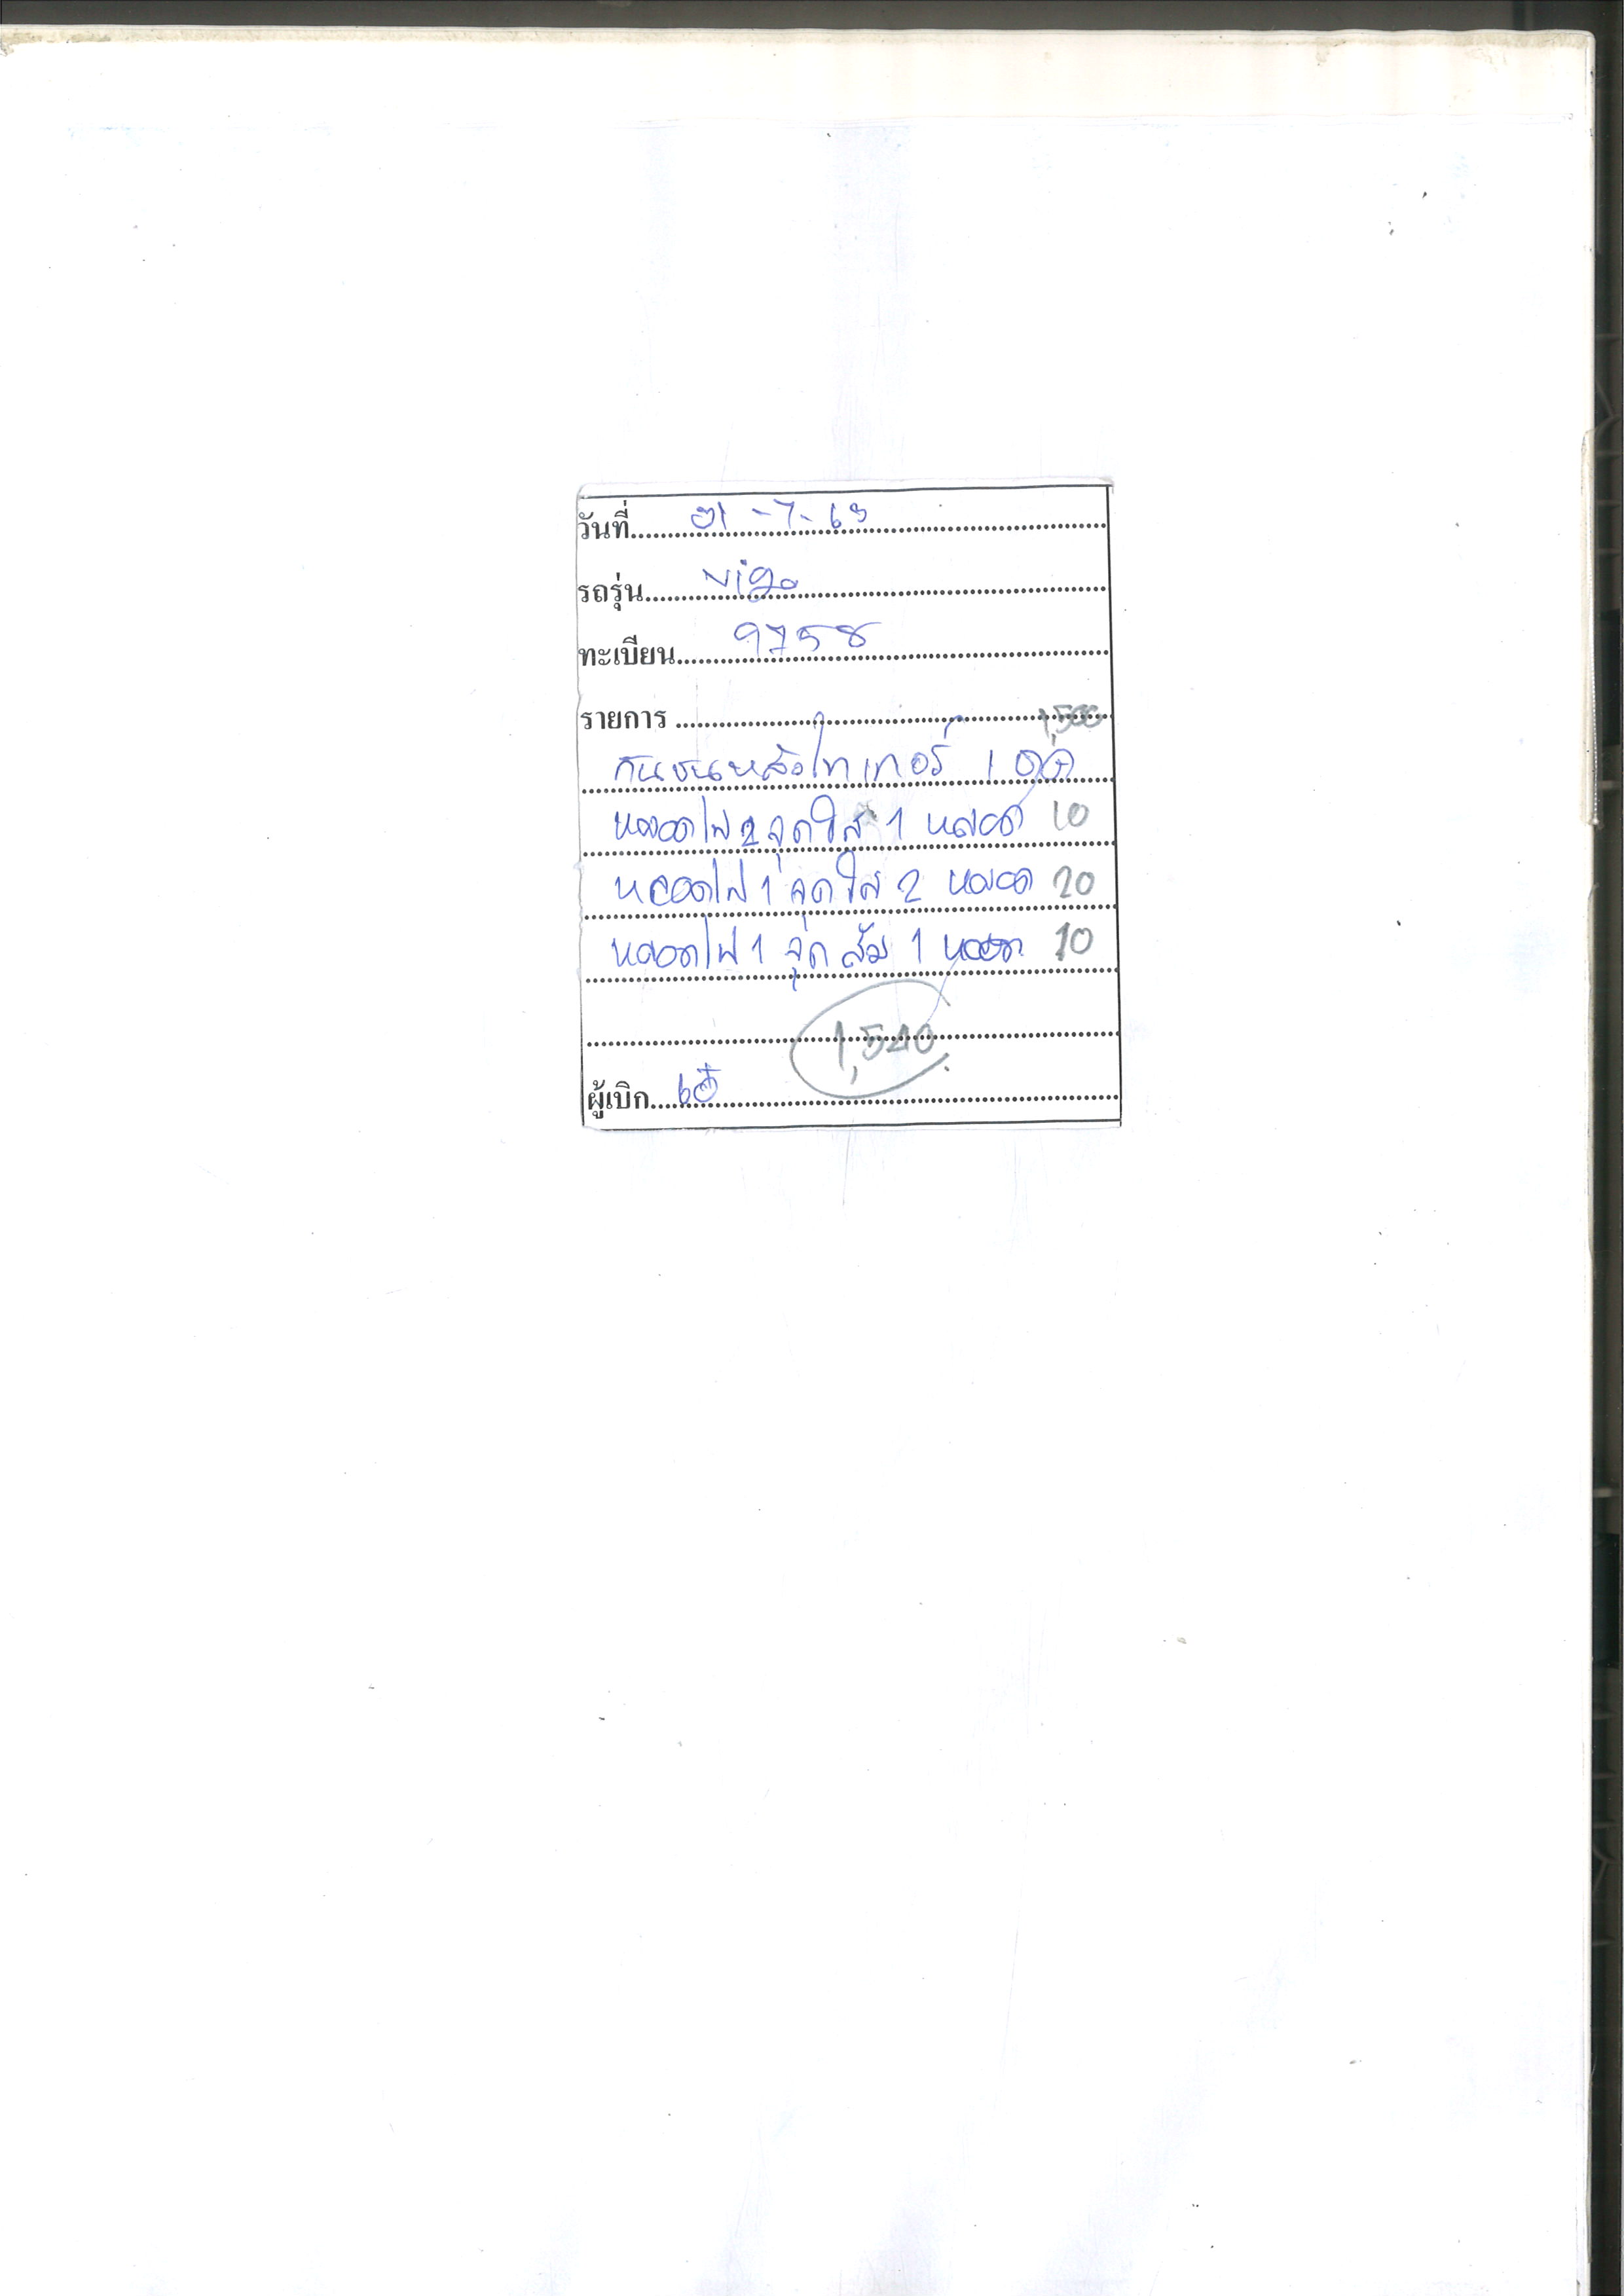 วันที่ 21-7-69
รถรุ่น Vigo
ทะเบียน 9758
รายการ 1,500
กันชนหลังไทเทอร์ 1
หลอดไฟ 2 จุดใส 1 หลอด 10
หลอดไฟ 1 จุดใส 2 หลอด 20
หลอดไฟ 1 จุด ส้ม 1 หลอด 10
1,540
ผู้เบิก